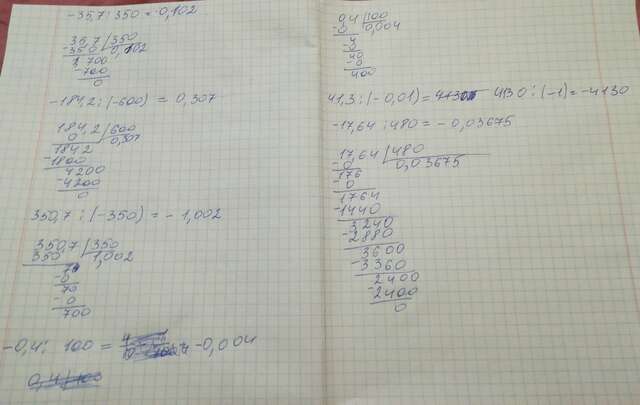 -35,7 : 350 = -0,102
35,7 | 350
-350 | 0,102
700
-700
0
-184,2 : (-600) = 0,307
184,2 | 600
0 | 0,307
1842
-1800
4200
-4200
0
350,7 : (-350) = -1,002
350,7 | 350
350 | 1,002
-0
70
-0
700
-0,4 : 100 = -0,004
0,4 | 100
-0 | 0,004
4
-0
40
-0
400
41,3 : (-0,01) = 4130 : (-1) = -4130
-17,64 : 480 = -0,03675
17,64 | 480
-0 | 0,03675
176
-0
1764
-1440
3240
-2880
3600
-3360
2400
-2400
0